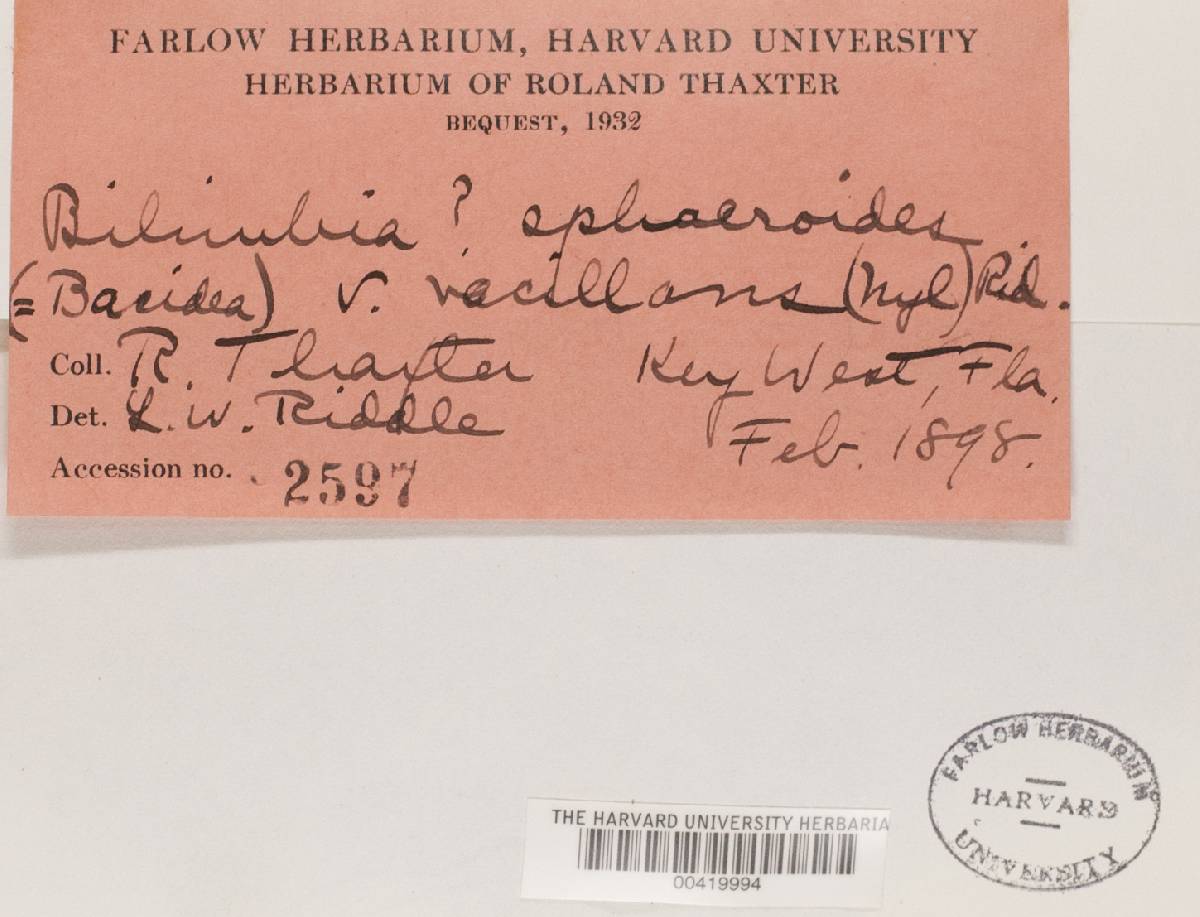 FARLOW HERBARIUM, HARVARD UNIVERSITY
HERBARIUM OF ROLAND THAXTER
BEQUEST, 1932
Bilimbia ? sphaeroides
(= Bacidea) v. vacillans (Nyl) Rid.
Coll. R. Thaxter Key West, Fla.
Det. L. W. Riddle Feb. 1898.
Accession no. 2597
THE HARVARD UNIVERSITY HERBARIA
00419994
FARLOW HERBARIUM
HARVARD
UNIVERSITY